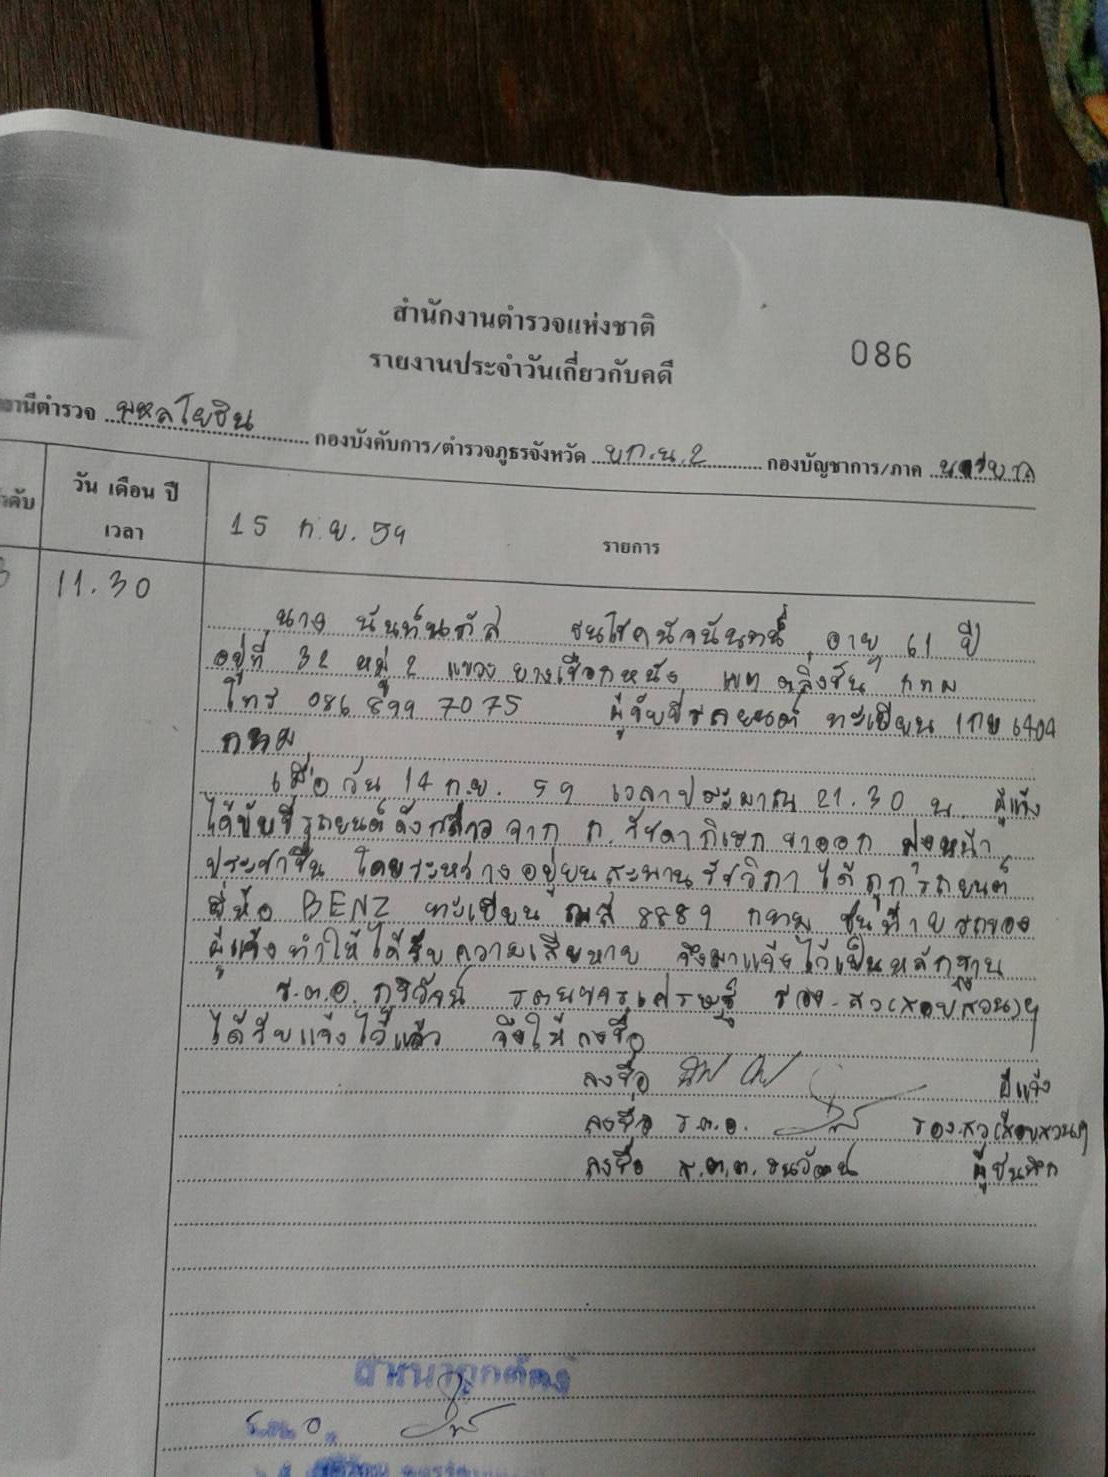 สำนักงานตำรวจแห่งชาติ
รายงานประจำวันเกี่ยวกับคดี
086
สถานีตำรวจ พหลโยธิน กองบังคับการ/ตำรวจภูธรจังหวัด บก.น.2 กองบัญชาการ/ภาค นครบาล
วัน เดือน ปี
เวลา
15 ก.ย. 59 รายการ
11.30
นาง อายุ 61 ปี
อยู่ที่ 32 หมู่ 2 แขวง บางเชือกหนัง เขต ตลิ่งชัน กทม
โทร 086 899 7075 ผู้ขับขี่รถยนต์ ทะเบียน 1กข 6404
กทม
เมื่อวัน 14 ก.ย. 59 เวลาประมาณ 21.30 น. ผู้แจ้ง
ได้ขับขี่รถยนต์ดังกล่าว จาก ถ. รัชดาภิเษก ขาออก มุ่งหน้า
ประชาชื่น โดยระหว่างอยู่บนสะพานรัชวิภา ได้ถูกรถยนต์
ยี่ห้อ BENZ ทะเบียน 8889 กทม ชนท้ายรถของ
ผู้แจ้งทำให้ได้รับความเสียหาย จึงมาแจ้งไว้เป็นหลักฐาน
ร.ต.อ. ภูริวัจน์ รอง.สว(สอบสวน)ฯ
ได้รับแจ้งไว้แล้ว จึงให้ลงชื่อ
ลงชื่อ ผู้แจ้ง
ลงชื่อ ร.ต.อ. รอง.สว(สอบสวน)ฯ
ลงชื่อ ส.ต.ต. ธนวัฒน์ ผู้บันทึก
สำเนาถูกต้อง
ร.ต.อ.